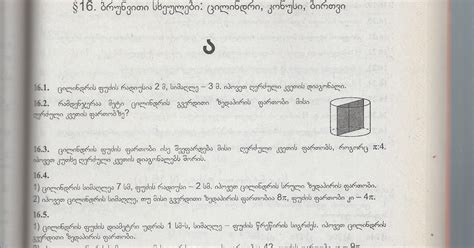 §16. ბრუნვითი სხეულები: ცილინდრი, კონუსი, ბირთვი
ა
16.1. ცილინდრის ფუძის რადიუსია 2 მ, სიმაღლე – 3 მ. იპოვეთ ღერძული კვეთის დიაგონალი.
16.2. რამდენჯერაა მეტი ცილინდრის გვერდითი ზედაპირის ფართობი მისი
ღერძული კვეთის ფართობზე?
16.3. ცილინდრის ფუძის ფართობი ისე შეეფარდება მისი ღერძული კვეთის ფართობს, როგორც π:4.
იპოვეთ კუთხე ღერძული კვეთის დიაგონალებს შორის.
16.4.
1) ცილინდრის სიმაღლეა 7 სმ, ფუძის რადიუსი – 2 სმ. იპოვეთ ცილინდრის სრული ზედაპირის ფართობი.
2) იპოვეთ ცილინდრის სიმაღლე, თუ მისი გვერდითი ზედაპირის ფართობია 8π, ფუძის ფართობი კი – 4π.
16.5.
1) ცილინდრის ფუძის დიამეტრი უდრის 1 სმ-ს, სიმაღლე – ფუძის წრეწირის სიგრძეს. იპოვეთ ცილინდრის
გვერდითი ზედაპირის ფართობი.